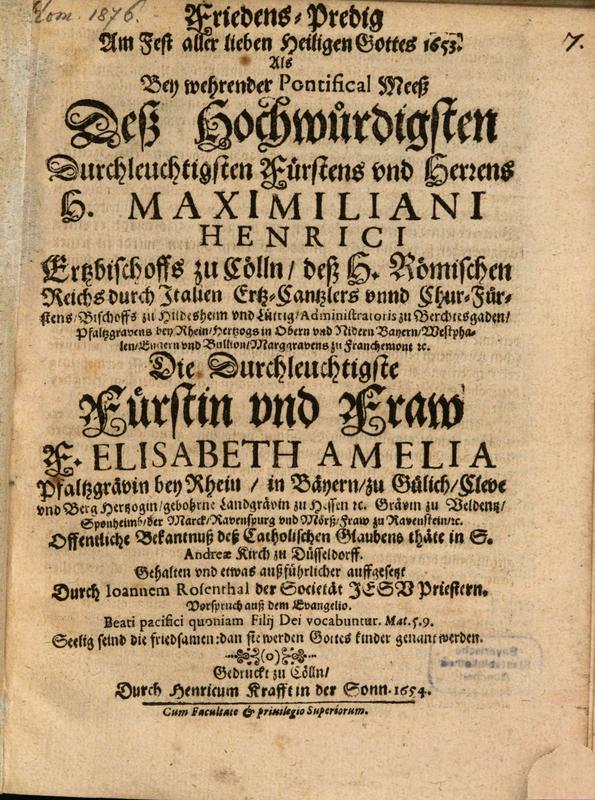 Hom. 1876.
7.
Friedens-Predig
Am Fest aller lieben Heiligen Gottes 1653.
Als
Bey wehrender Pontifical Meeß
Deß Hochwürdigsten
Durchleuchtigsten Fürstens vnd Herrens
H. MAXIMILIANI
HENRICI
Ertzbischoffs zu Cölln/ deß H. Römischen
Reichs durch Italien Ertz-Cantzlers vnnd Chur-Für-
stens/Bischoffs zu Hildesheim vnd Lüttig/Administratoris zu Berchtesgaden/
Pfaltzgravens bey Rhein/Hertzogs in Obern vnd Nidern Bayern/Westpha-
len/Engern vnd Bullion/Marggravens zu Franchemont ꝛc.
Die Durchleuchtigste
Fürstin vnd Fraw
F. ELISABETH AMELIA
Pfaltzgrävin bey Rhein / in Bäyern/zu Gülich/Cleve
vnd Berg Hertzogin/gebohrne Landgrävin zu Hessen ꝛc. Grävin zu Veldentz/
Sponheimb/der Marck/Ravenspurg vnd Mörß/Fraw zu Ravenstein/ꝛc.
Offentliche Bekantnuß deß Catholischen Glaubens thäte in S.
Andreæ Kirch zu Düsseldorff.
Gehalten vnd etwas außführlicher auffgesetzt
Durch Ioannem Rosenthal der Societät JESV Priestern.
Vorspruch auß dem Evangelio.
Beati pacifici quoniam Filij Dei vocabuntur. Mat. 5. 9.
Seelig seind die friedsamen: dan sie werden Gottes kinder genant werden.
Gedruckt zu Cölln/
Durch Henricum Krafft in der Sonn. 1654.
Cum Facultate & privilegio Superiorum.